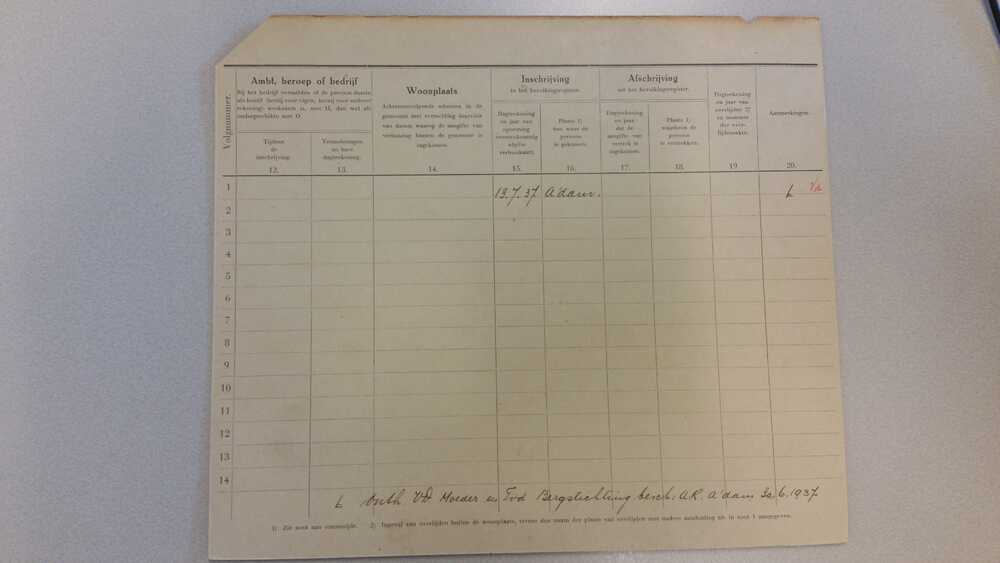 Volgnummer.
Ambt, beroep of bedrijf
Bij het bedrijf vermelden of de persoon daarin
als hoofd (bedrijf voor eigen,
rekening) werkzaam is, met H, dan wel als
ondergeschikte met O.
Tijdens
de
inschrijving.
12.
Veranderingen
en hare
dagteekening.
13.
Woonplaats
Achtereenvolgende adressen in de
gemeente met vermelding daarvóór
van datum waarop de aangifte van
verhuizing binnen de gemeente is
ingekomen.
14.
Inschrijving
in het bevolkingsregister.
Dagteekening
en jaar van
opneming
overeenkomstig
afgifte
verhuiskaart.
15.
Plaats 1)
van waar de
persoon
is gekomen.
16.
Afschrijving
uit het bevolkingsregister.
Dagteekening
en jaar
dat de
aangifte van
vertrek is
ingekomen.
17.
Plaats 1)
waarheen de
persoon
is vertrokken.
18.
Dagteekening
en jaar van
overlijden 2)
en nummer
der over-
lijdensakte.
19
Aanmerkingen.
20.
1
13.7.37 A'dam.
L
2
3
4
5
6
7
8
9
10
11
12
13
14
L Onth Moeder en Bergstichting besch. A.R. A'dam 30.6.1937
1) Zie noot aan ommezijde. 2) Ingeval van overlijden buiten de woonplaats, tevens den naam der plaats van overlijden met nadere aanduiding als in noot 1 aangegeven.